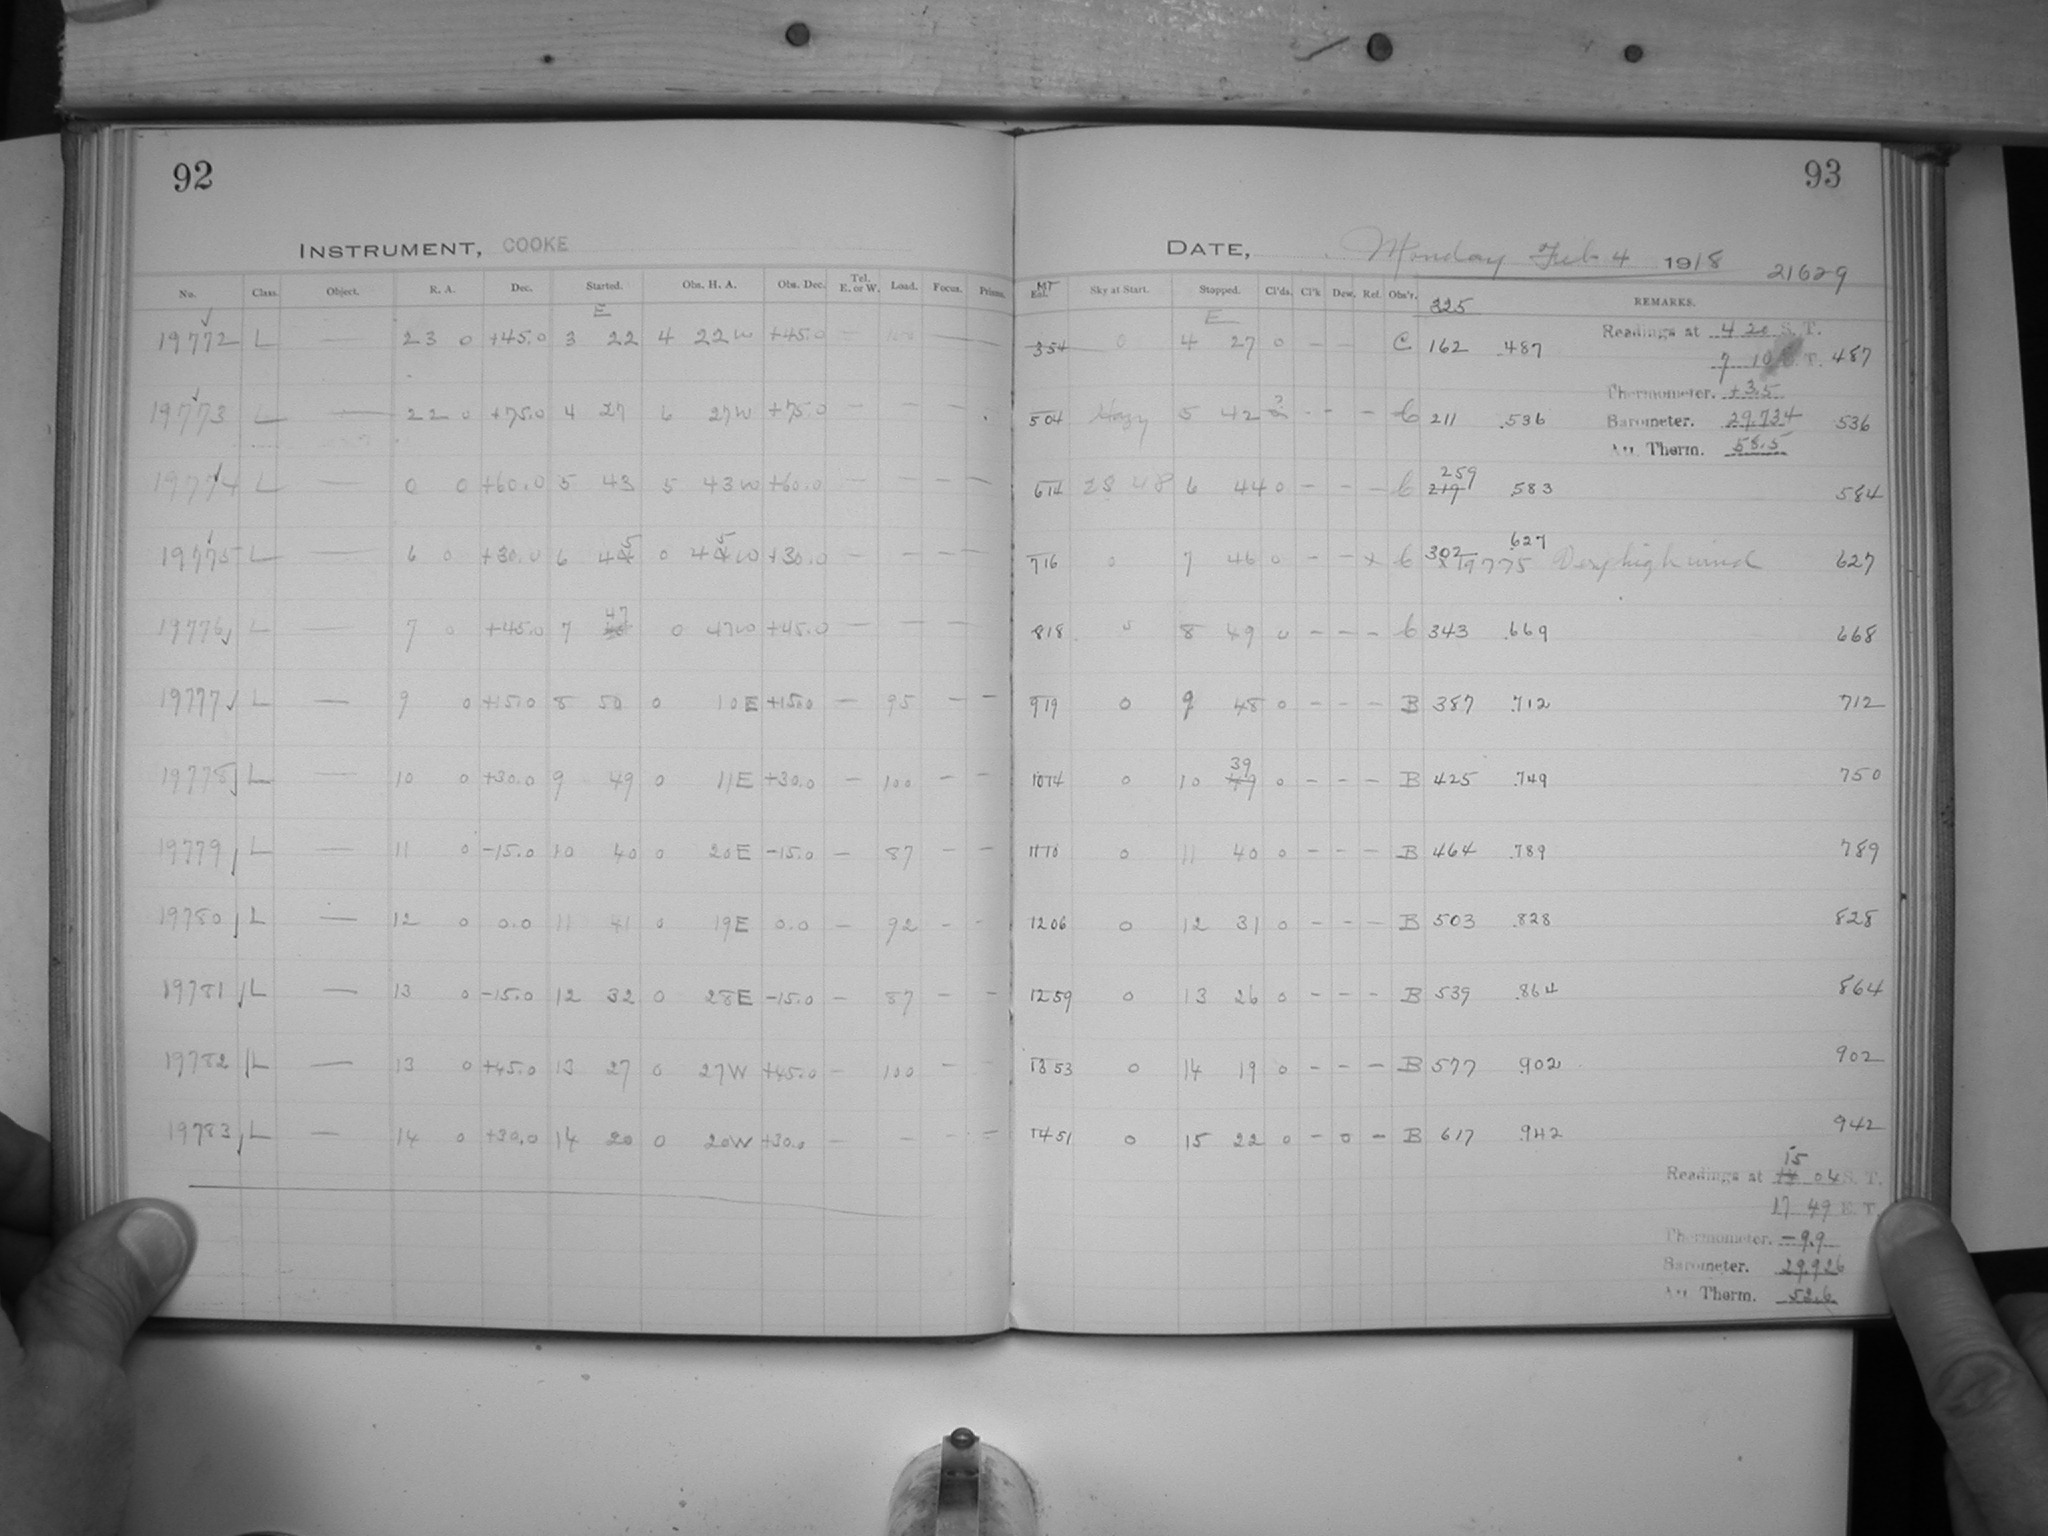 92
INSTRUMENT, COOKE
No. Class. Object. R. A. Dec. Started. Obs. H. A. Obs. Dec. Tel. E. or W. Load. Focus. Prisms.
E
19772 L — 23 0 +45.0 3 22 4 22 W +45.0 — 100 — —
19773 L — 22 0 +75.0 4 27 6 27 W +75.0 — — — —
19774 L — 0 0 +60.0 5 43 5 43 W +60.0 — — — —
19775 L — 6 0 +30.0 6 45 0 45 W +30.0 — — — —
19776 L — 7 0 +45.0 7 47 0 47 W +45.0 — — — —
19777 L — 9 0 +15.0 8 50 0 10 E +15.0 — 95 — —
19778 L — 10 0 +30.0 9 49 0 11 E +30.0 — 100 — —
19779 L — 11 0 -15.0 10 40 0 20 E -15.0 — 87 — —
19780 L — 12 0 0.0 11 41 0 19 E 0.0 — 92 - -
19781 L — 13 0 -15.0 12 32 0 28 E -15.0 — 87 — —
19782 L — 13 0 +45.0 13 27 0 27 W +45.0 — 100 — -
19783 L — 14 0 +30.0 14 20 0 20 W +30.0 — — — —
93
DATE, Monday Feb 4 1918 21629
Exl. Sky at Start. Stopped. Cl'ds. Cl'k Dew. Ref. Obs'r. 325 REMARKS.
E
Readings at 4 20 S. T.
354 0 4 27 0 - - C 162 .487 487
7 10 E. T.
Thermometer. +3.5
504 Hazy 5 42 ? - - - C 211 .536 Barometer. 29.734 536
Att. Therm. 58.5
614 6 44 0 - - - C 259 219 .583 584
716 0 7 46 0 - - x C 302 .627 627
x 19775 Very high wind
818 0 8 49 0 - - - C 343 .669 668
919 0 9 48 0 - - - B 387 .712 712
1014 0 10 39 49 0 - - - B 425 .749 750
1110 0 11 40 0 - - - B 464 .789 789
1206 0 12 31 0 - - - B 503 .828 828
1259 0 13 26 0 - - - B 539 .864 864
1353 0 14 19 0 - - - B 577 .902 902
1451 0 15 22 0 - 0 - B 617 .942 942
Readings at 15 04 S. T.
17 49 E. T.
Thermometer. -9.9
Barometer. 29.926
Att. Therm. 52.6